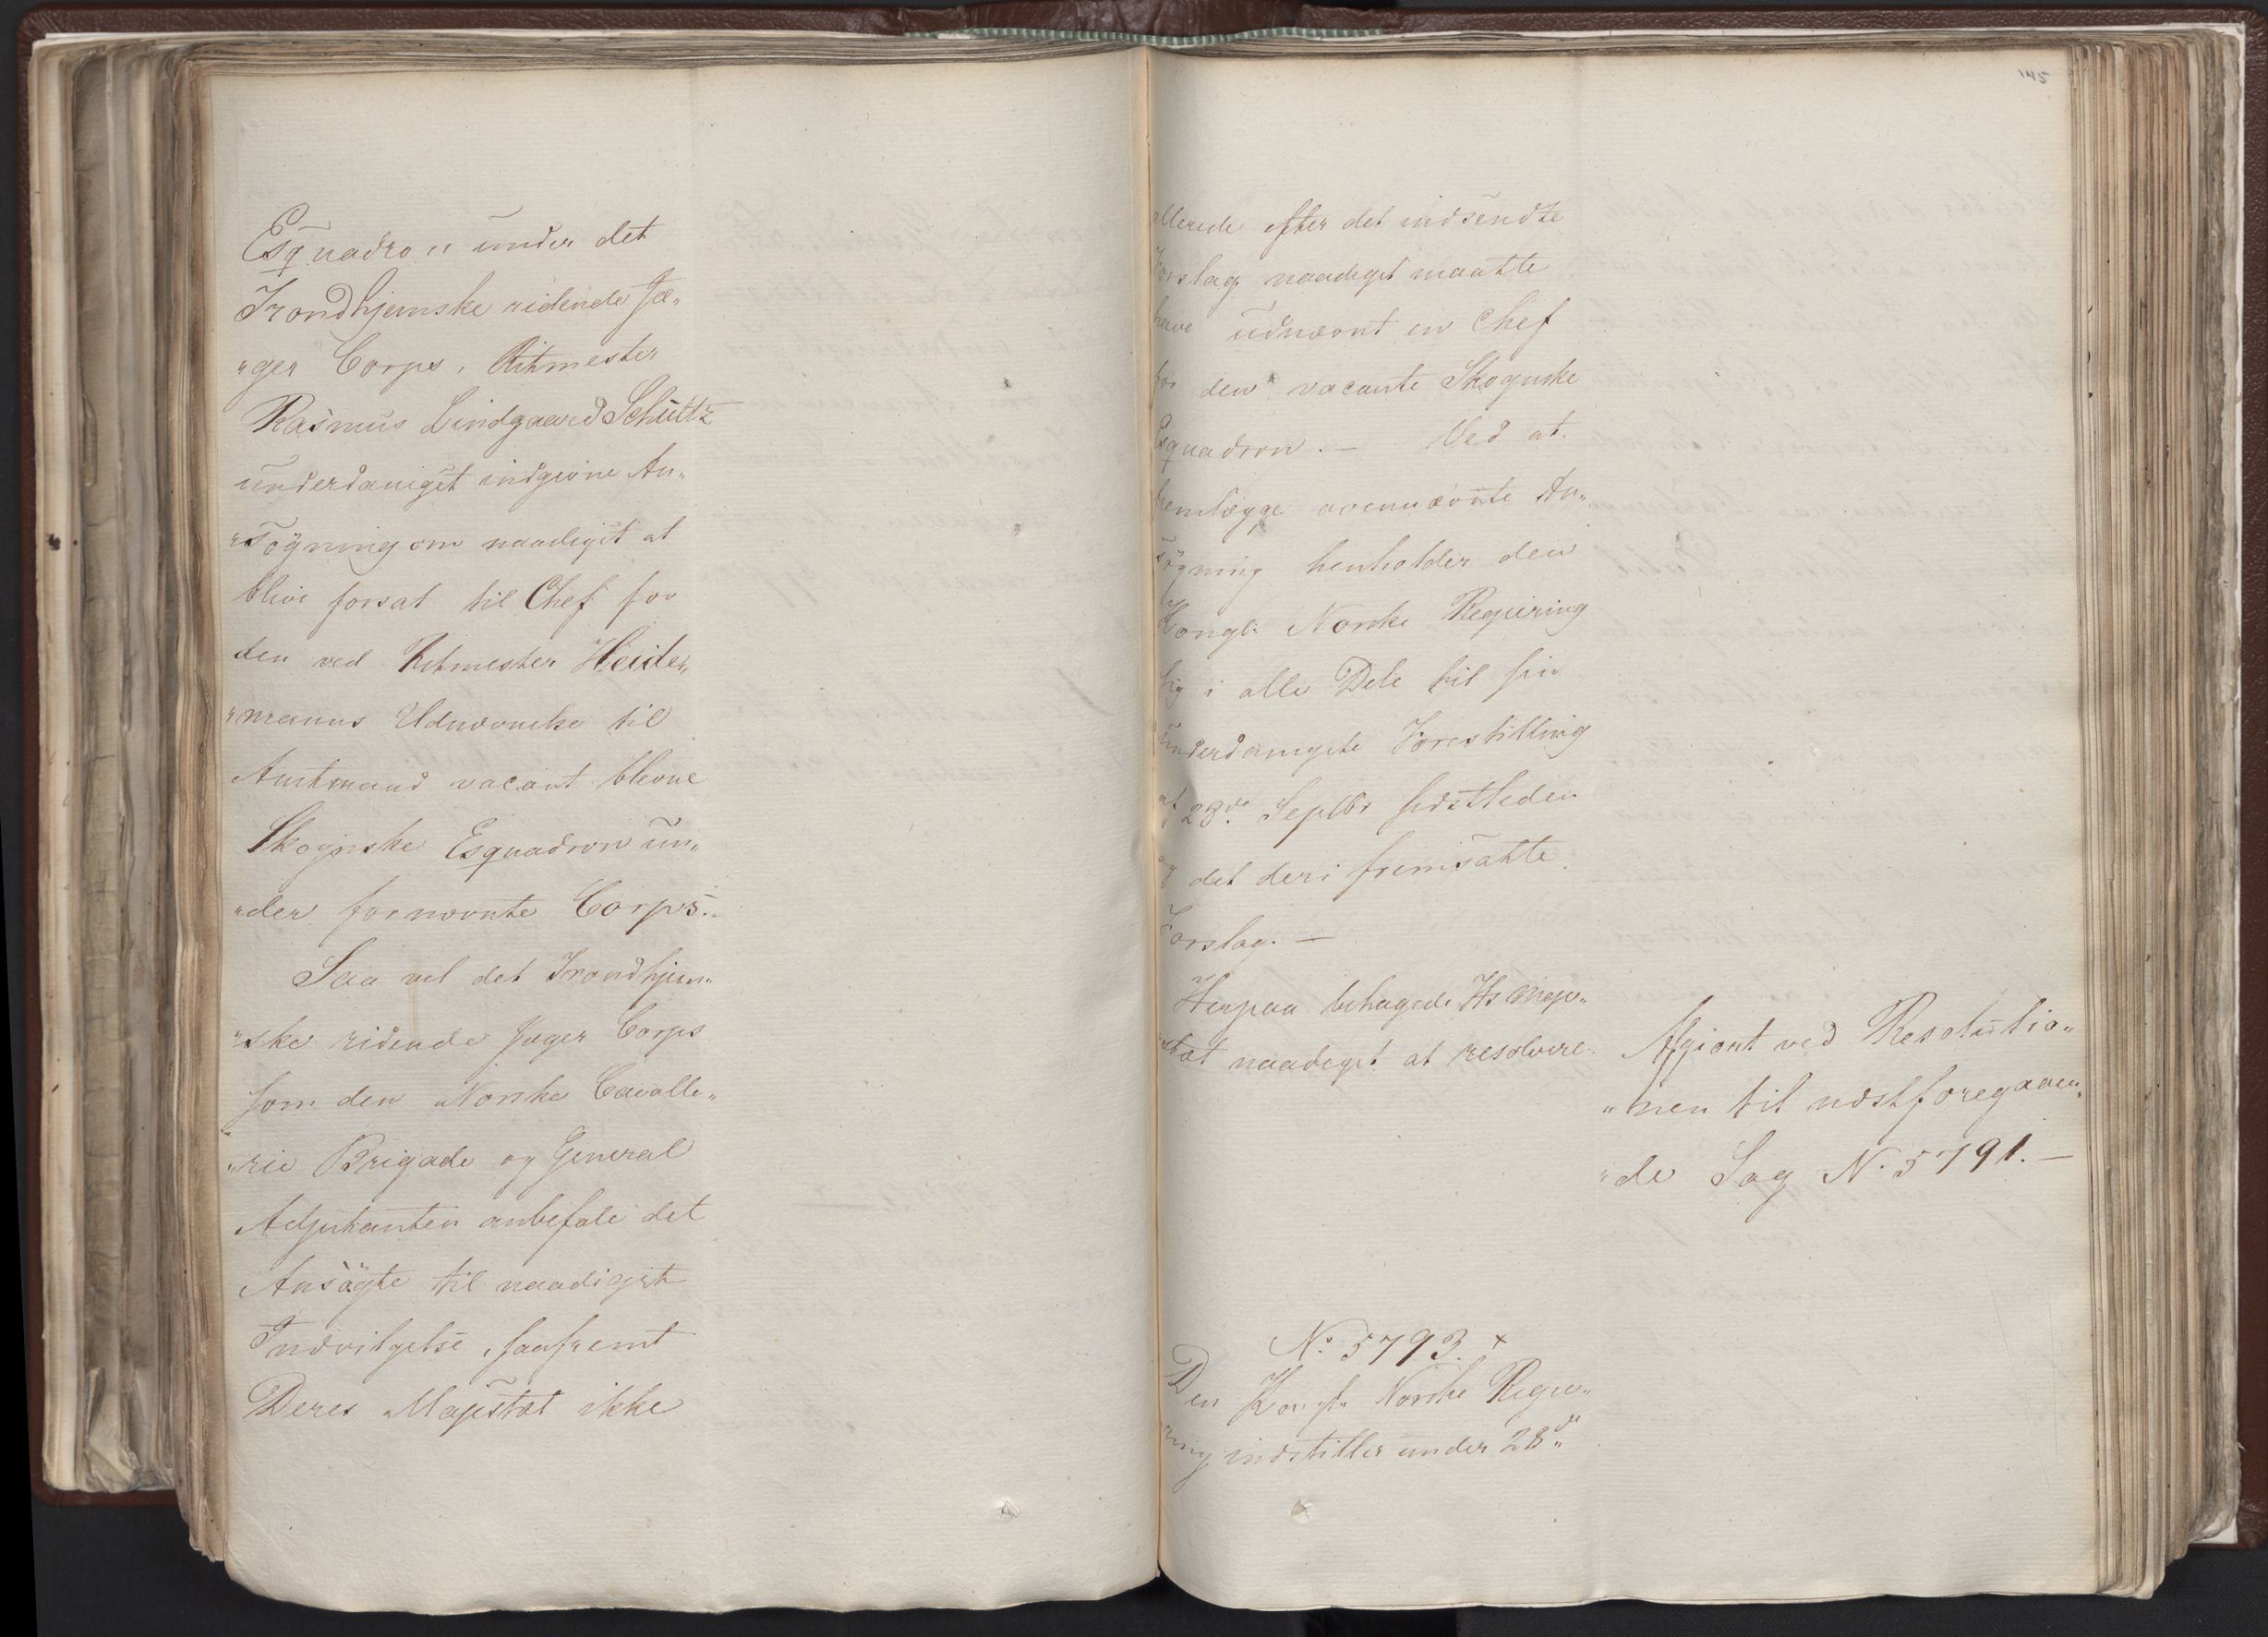 Esquadron under det
Trondhjemske ridende Jæ„
„ger Corps, Ritmester
Rasmus Lindgaard Schultz
underdanigst indgivne An„
„søgning om naadigst at
blive forsat til Chef for
den ved Ritmester Heider„
„manns Udnævnelse til
Amtmand vacant blevne
Skognske Esquadron un„
„der fornævnte Corps.-
Saa vel det Trondhjem„
„ske ridende Jæger Corps
som den Norske Cavalle„
„rie Brigade og General
Adjutanten anbefale det
Ansøgte til naadigst
Indvilgelse, saafremt
Deres Majestæt ikke
145
allerede efter det indsendte
Forslag naadigst maatte
have udnævnt en Chef
for den vacante Skognske
Esquadron. — Ved at
fremlægge ovennævnte An„
søgning henholder den
Kongl. Norske Regjering
sig i alle Dele til sin
underdanigste Forestilling
af 23de Septbr sidstleden
og det deri fremsatte
Forslag. —
Herpaa behagede Hs Maje„
„stæt naadigst at resolvere:
Afgiort ved Resolutio„
„nen til næstforegaaen„
„de Sag No 5791. —
No 5793. +
Den Kongl. Norske Regie„
ring indstiller under 28de